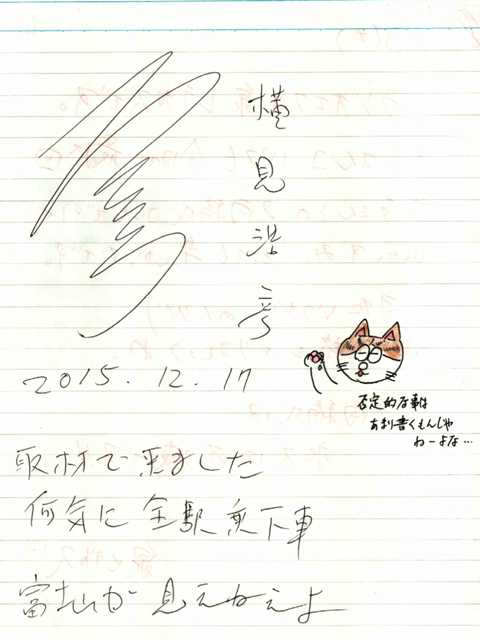 横見浩彦
2015.12.17
否定的な事は
あまり書くもんじゃ
ねーよな…
取材で来ました
何気に全駅乗下車
富士山が見えねえよ